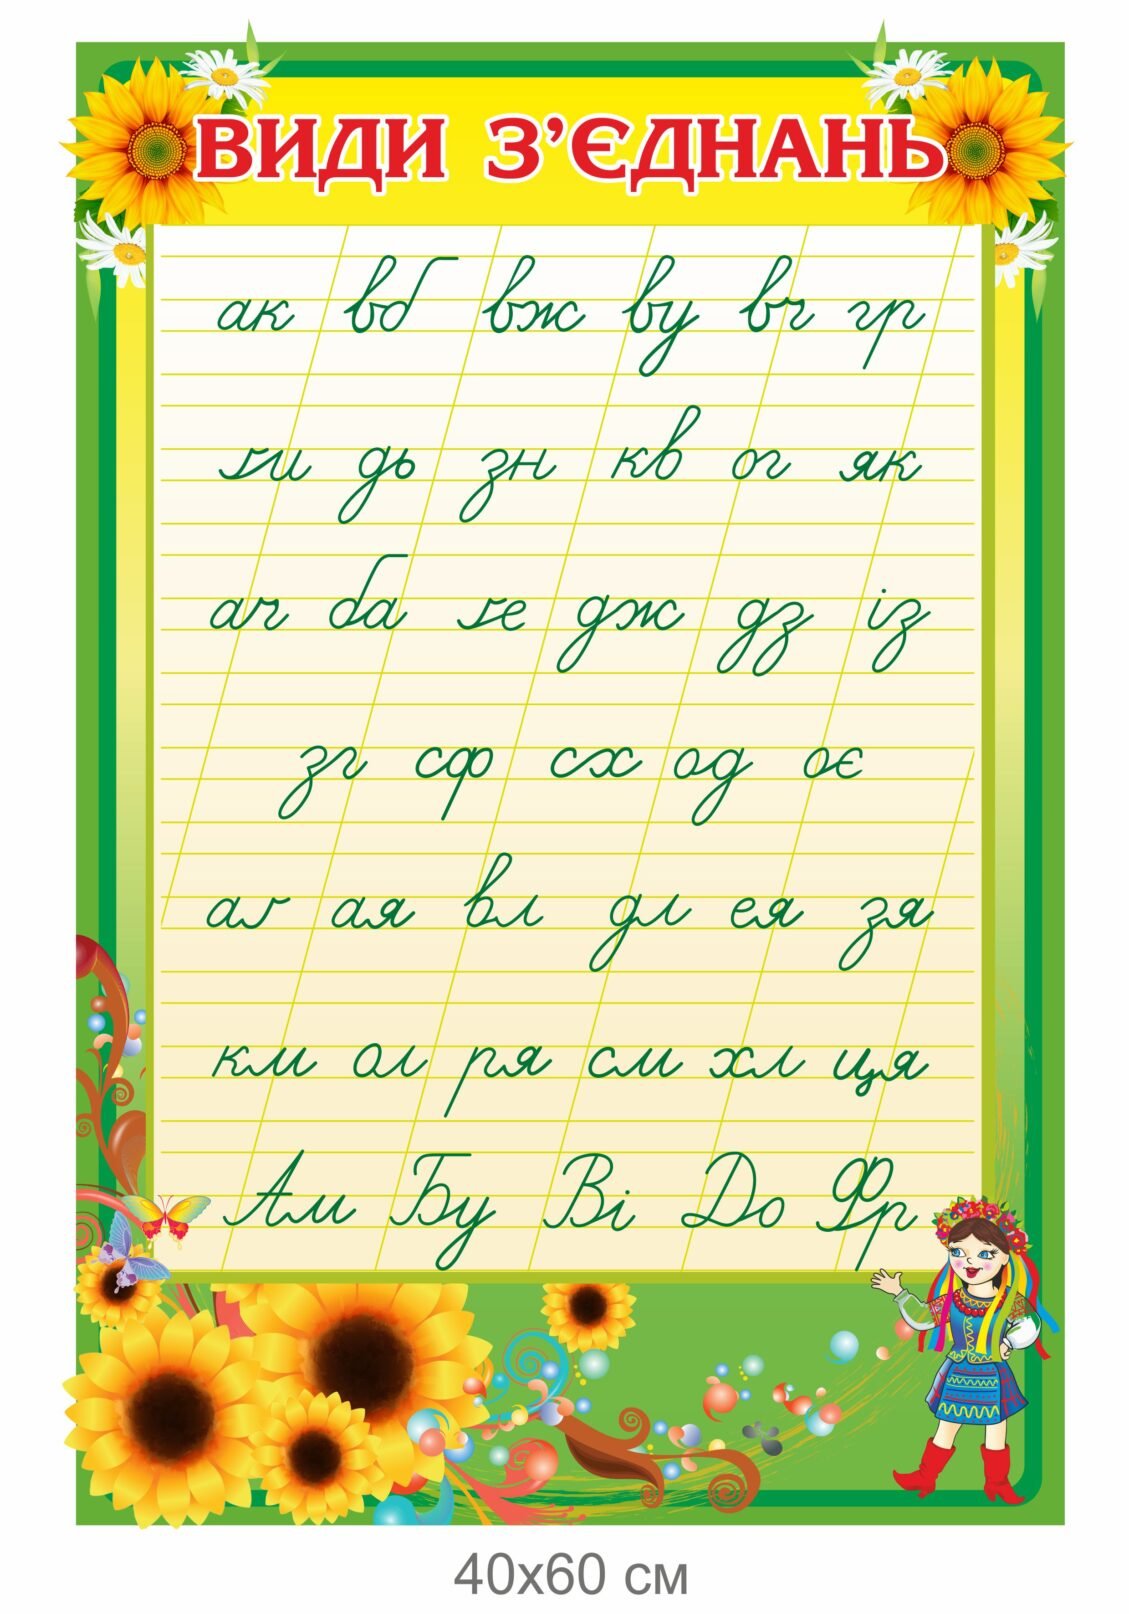 ВИДИ З’ЄДНАНЬ
ак вб вж ву вч гр
ґи дь зн кв ог як
ач ба ґе дж дз із
зг сф сх од оє
ал ая вл дл ея зя
км ол ря см хл ця
Ам Бу Ві До Фр
40х60 см